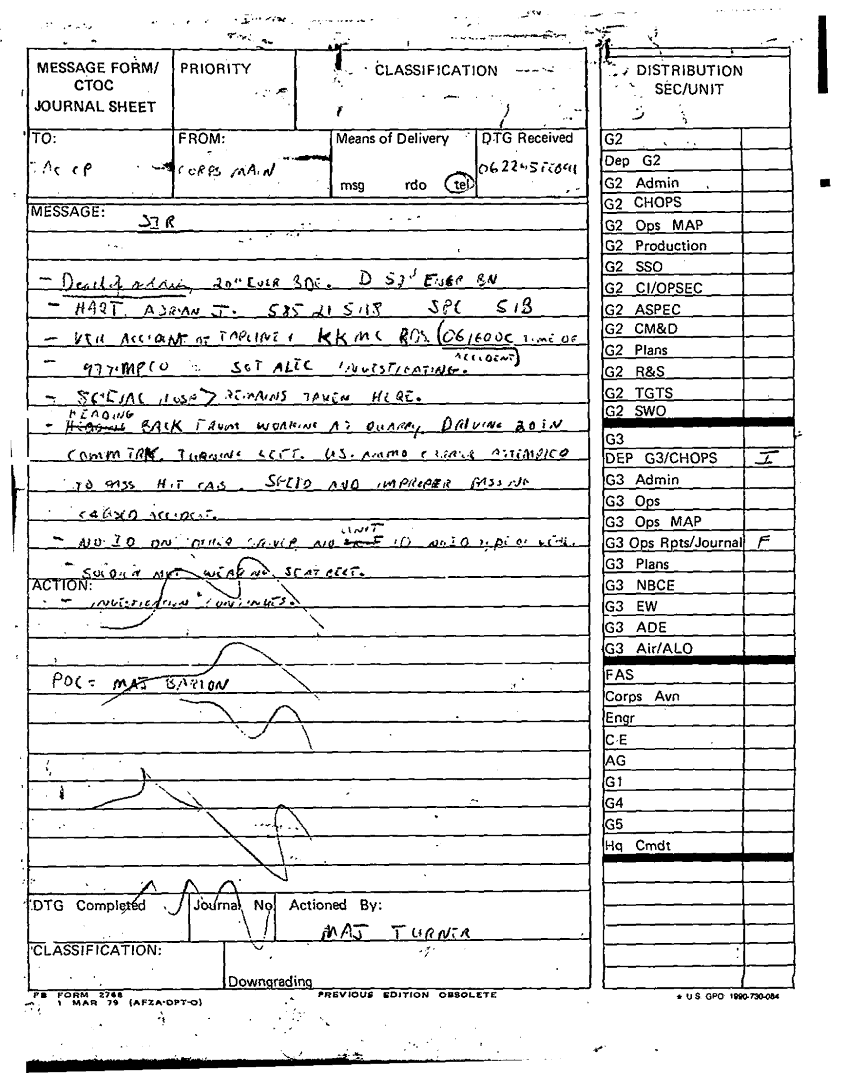 MESSAGE FORM/
CTOC
JOURNAL SHEET
PRIORITY
CLASSIFICATION
TO:
TAC CP
FROM:
CORPS MAIN
Means of Delivery
msg rdo tel
DTG Received
MESSAGE:
SIR
- Death of 20th ENGR BDE. D ENGR BN
- HART, ADRIAN J. SPC 51B
- VEH ACCIDENT AT TAPLINE & KKMC RDS (061600C TIME OF
ACCIDENT)
- 977 MPCO - SGT ALEC INVESTIGATING.
- HOSP > REMAINS TAKEN HERE.
HEADING
- BACK FROM WORKING AT QUARRY, DRIVING 20TN
COMM TRK. TURNING LEFT. U.S. AMMO ATTEMPTED
TO PASS HIT CAB. SPEED AND IMPROPER PASSING
CAUSED ACCIDENT.
UNIT
- NO ID ON OTHER DRIVER, NO ID AND TYPE OF VEH.
- SOLDIER NOT WEARING SEATBELT.
ACTION:
- INVESTIGATION CONTINUES.
POC = MAJ BARION
DTG Completed
Journal No
Actioned By:
MAJ TURNER
CLASSIFICATION:
Downgrading
FB FORM 2768
1 MAR 79 (AFZA-DPT-O)
PREVIOUS EDITION OBSOLETE
DISTRIBUTION
SEC/UNIT
G2
Dep G2
G2 Admin
G2 CHOPS
G2 Ops MAP
G2 Production
G2 SSO
G2 CI/OPSEC
G2 ASPEC
G2 CM&D
G2 Plans
G2 R&S
G2 TGTS
G2 SWO
G3
DEP G3/CHOPS I
G3 Admin
G3 Ops
G3 Ops MAP
G3 Ops Rpts/Journal F
G3 Plans
G3 NBCE
G3 EW
G3 ADE
G3 Air/ALO
FAS
Corps Avn
Engr
C-E
AG
G1
G4
G5
Hq Cmdt
* U S GPO 1990-730-084